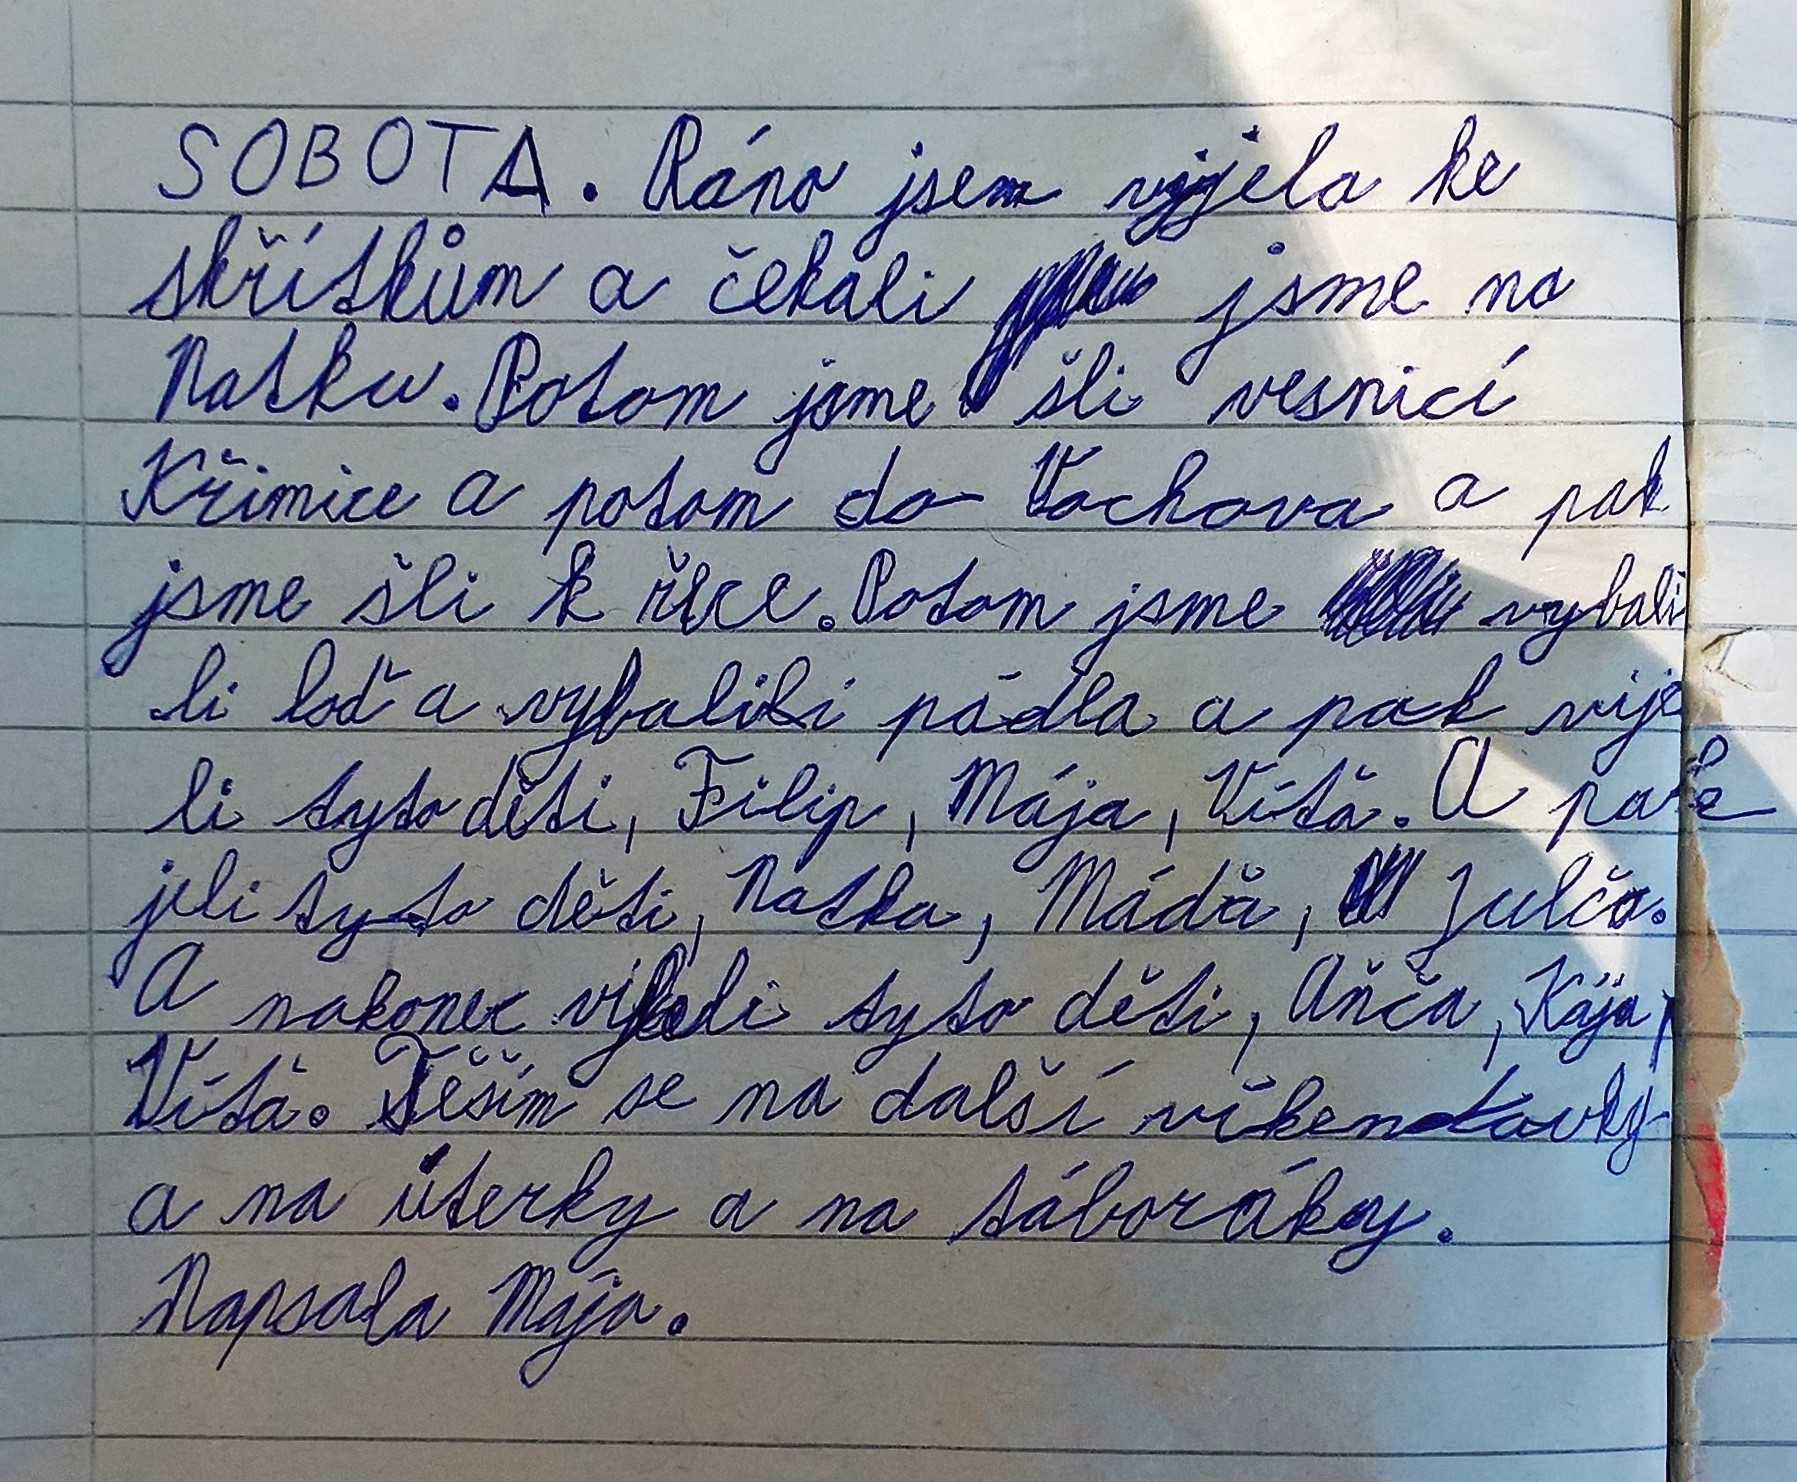 SOBOTA. Ráno jsem vyjela ke
skřítkům a čekali jsme na
Natku. Potom jsme šli vesnicí
Křimice a potom do Vochova a pak
jsme šli k řece. Potom jsme vybali
li loď a vybalili pádla a pak vije
li tyto děti, Filip, Mája, Víťa. A pak
jeli tyto děti, Natka, Máďa, Julča.
A nakonec vijeli tyto děti, Anča, Kája,
Víťa. Těším se na další víkendovky
a na úterky a na táboráky.
Napsala Mája.